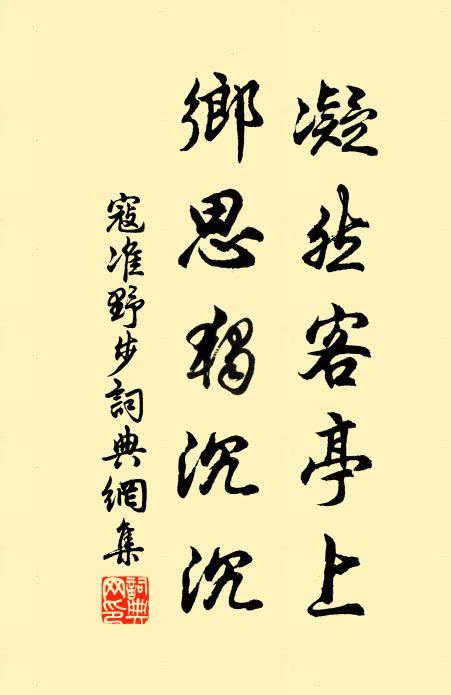 凝然客亭上
鄉思獨沉沉
寇准野步詞典網集
詞典
網印